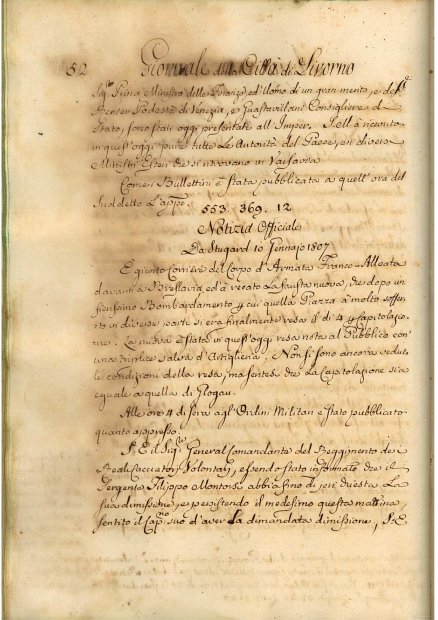 52 Giornale della Città di Livorno
Sig.r Prina Ministro delle Finanze ed Uomo di un gran merito, e del Sig.e
Renier Podestà di Venezia, e Guastavillani Consigliere di
Stato, sono stati oggi presentati all' Imper. Egli à ricevuto
in quest' oggi pure tutte le Autorità del Paese, e i diversi
Ministri Esteri che si ritrovano in Varsavia
Come i Bullettini è stata pubblicata a quell' ora del
sud.o detto Lappo.
553. 369. 12
Notizia Officiale
Da Stugard 10 Gennajo 1807
È giunto Corriere del Corpo d' Armata Franco-Alleata
davanti a Breslavia, ed à recato la fausta nuova, che dopo un
fierissimo Bombardamento per cui quella Piazza à molto soffer-
to in diverse parti si era finalmente resa il dì 4 per Capitolazio-
ne. La nuova è stata in quest' oggi resa nota al Pubblico con
una triplice salva d' Artiglieria. Non si sono ancora vedute
le condizioni della resa, ma sentesi che la Capitolazione sia
eguale a quella di Glogau.
Alle ore 4 di sera agl' Ordini Militari è stato pubblicato
quanto appresso.
S. E. il Sig.r General Comandante del Reggimento dei
Reali Cacciatori Volontarj, essendo stato informato che il
Sergente Filippo Montorsi abbia fino di jeri chiesta la
sua dimissione, e persistendo il medesimo questa mattina,
sentito il Cap.no suo d' aver la dimandata dimissione, S. E.